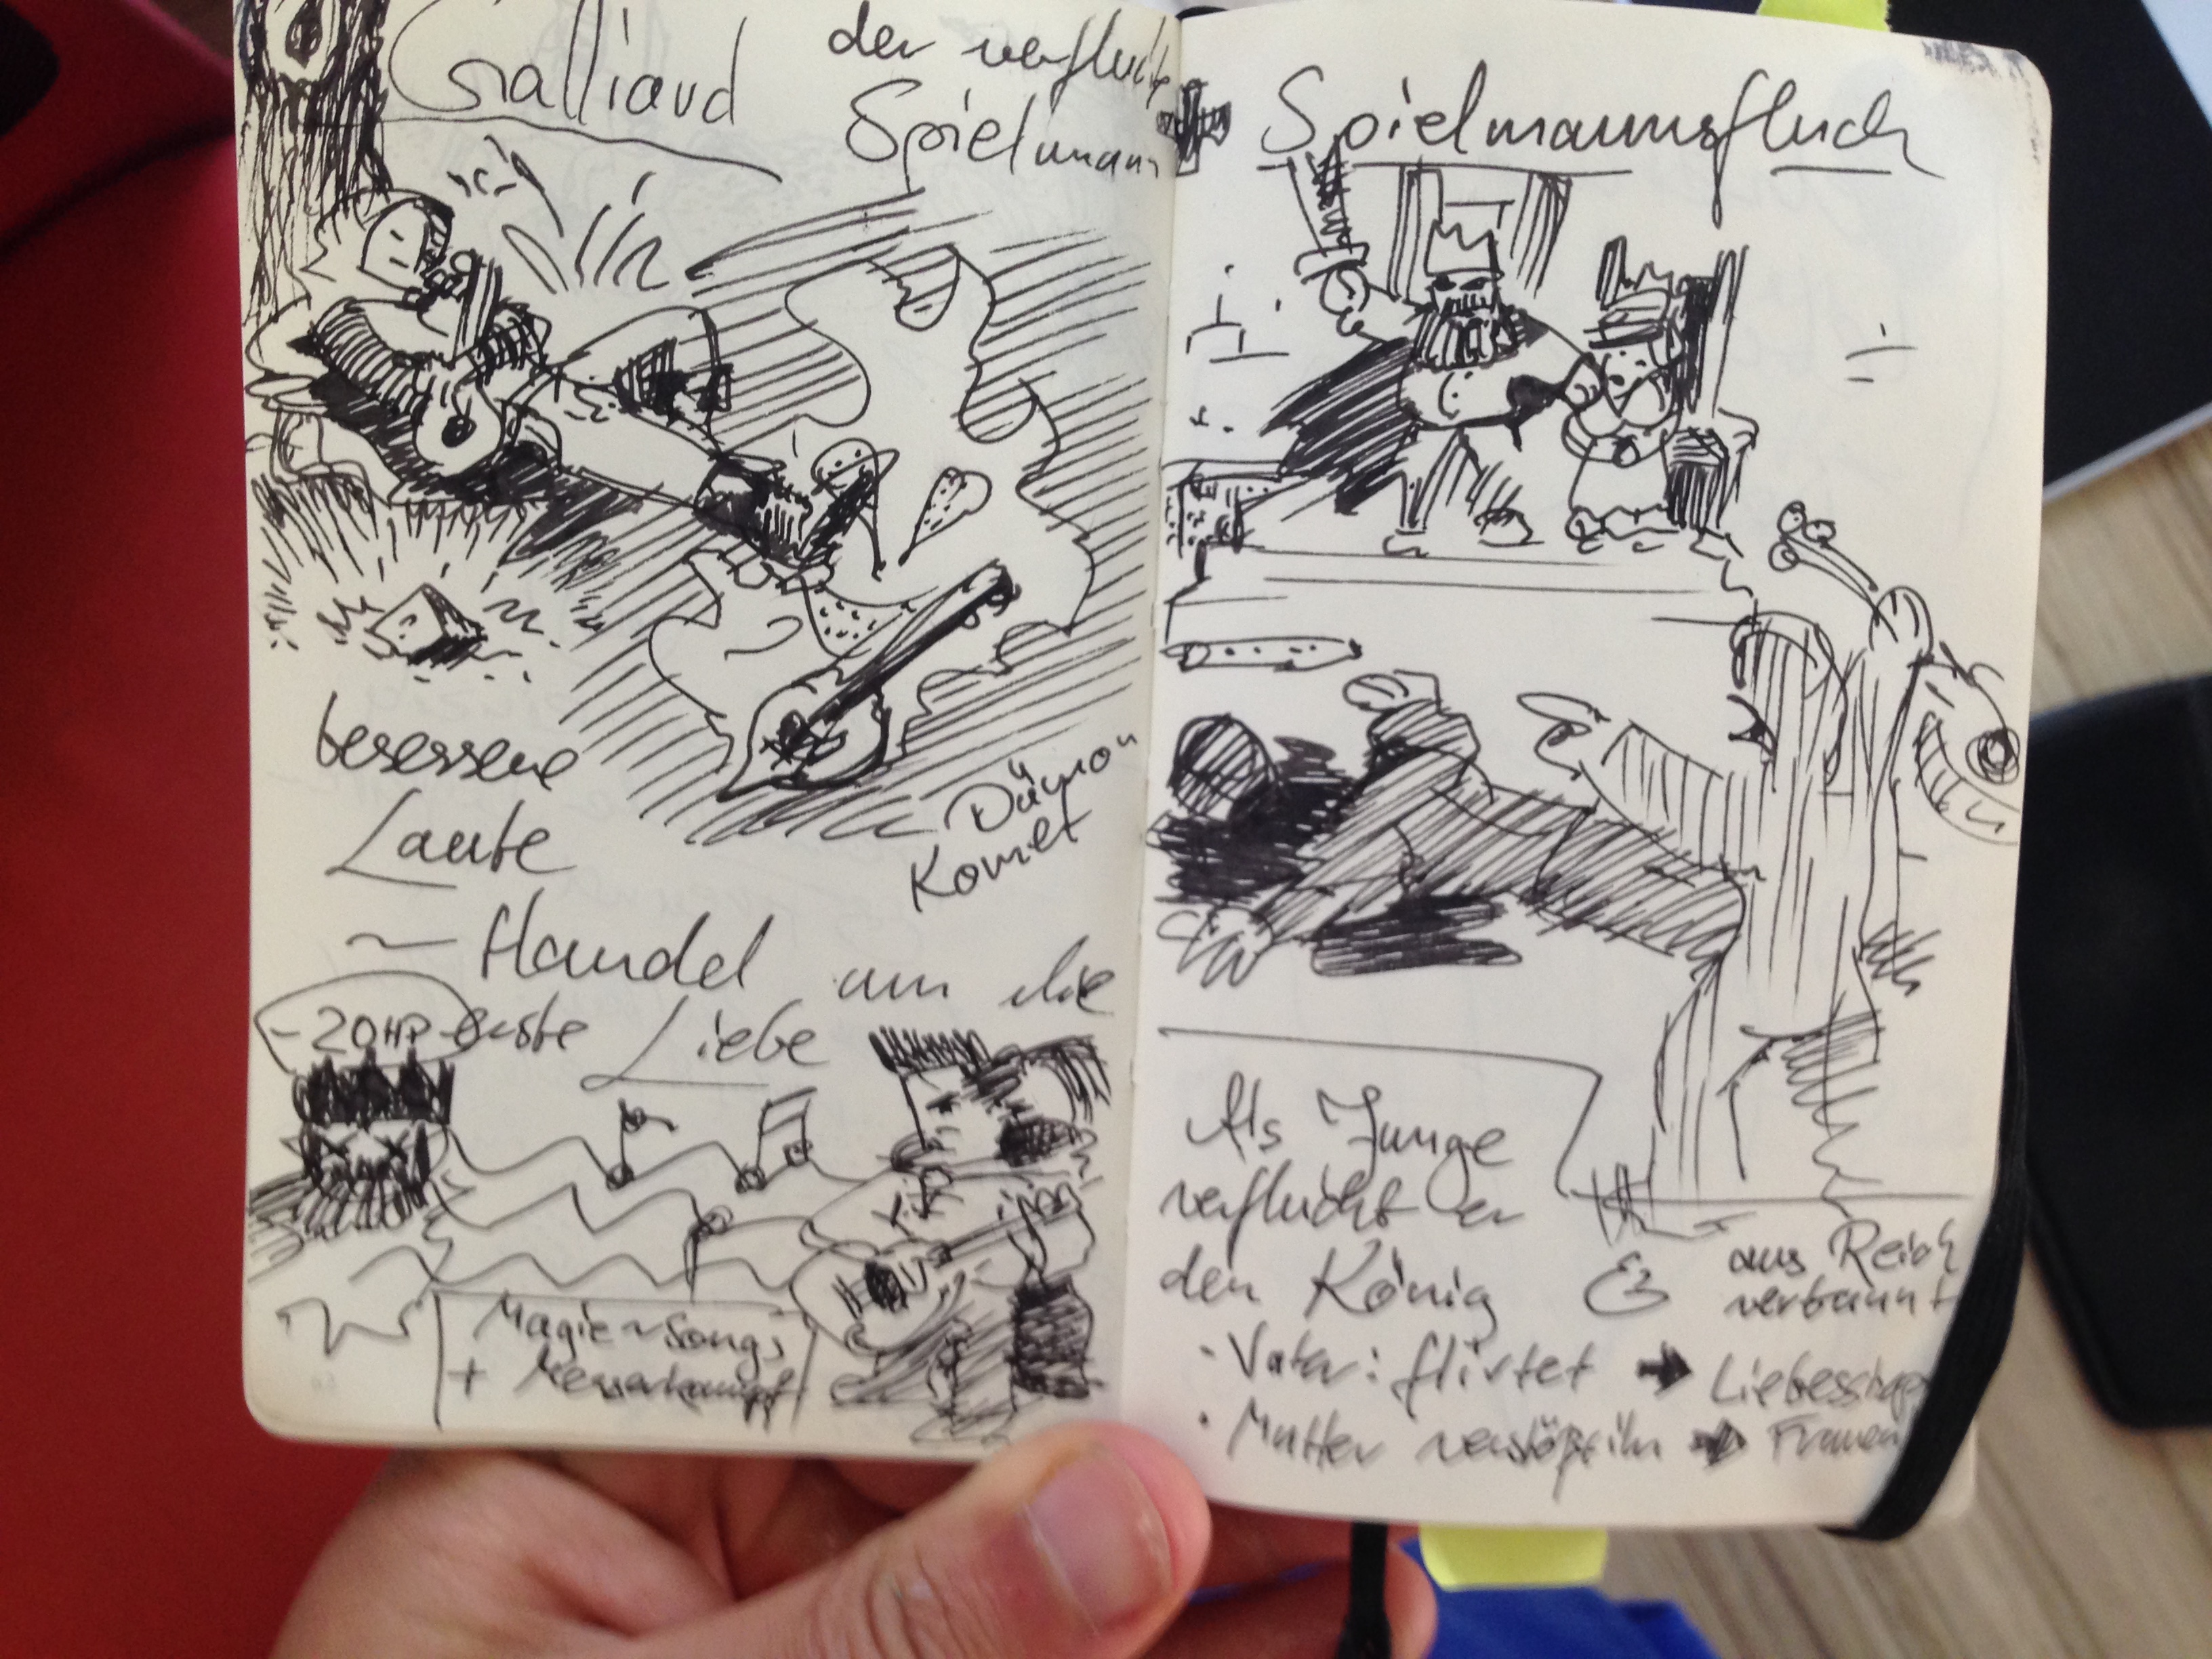 Galliard
der verfluchte
Spielmann
besessene
Laute
Dämon
Komet
~ Handel um die
erste Liebe
-20HP
Magie ~ Songs
+ Messerkampf
Spielmannsfluch
Als Junge
verflucht er
den König & aus Reich
verbannt
· Vater: flirtet →
· Mutter verstößt ihn → Frauen